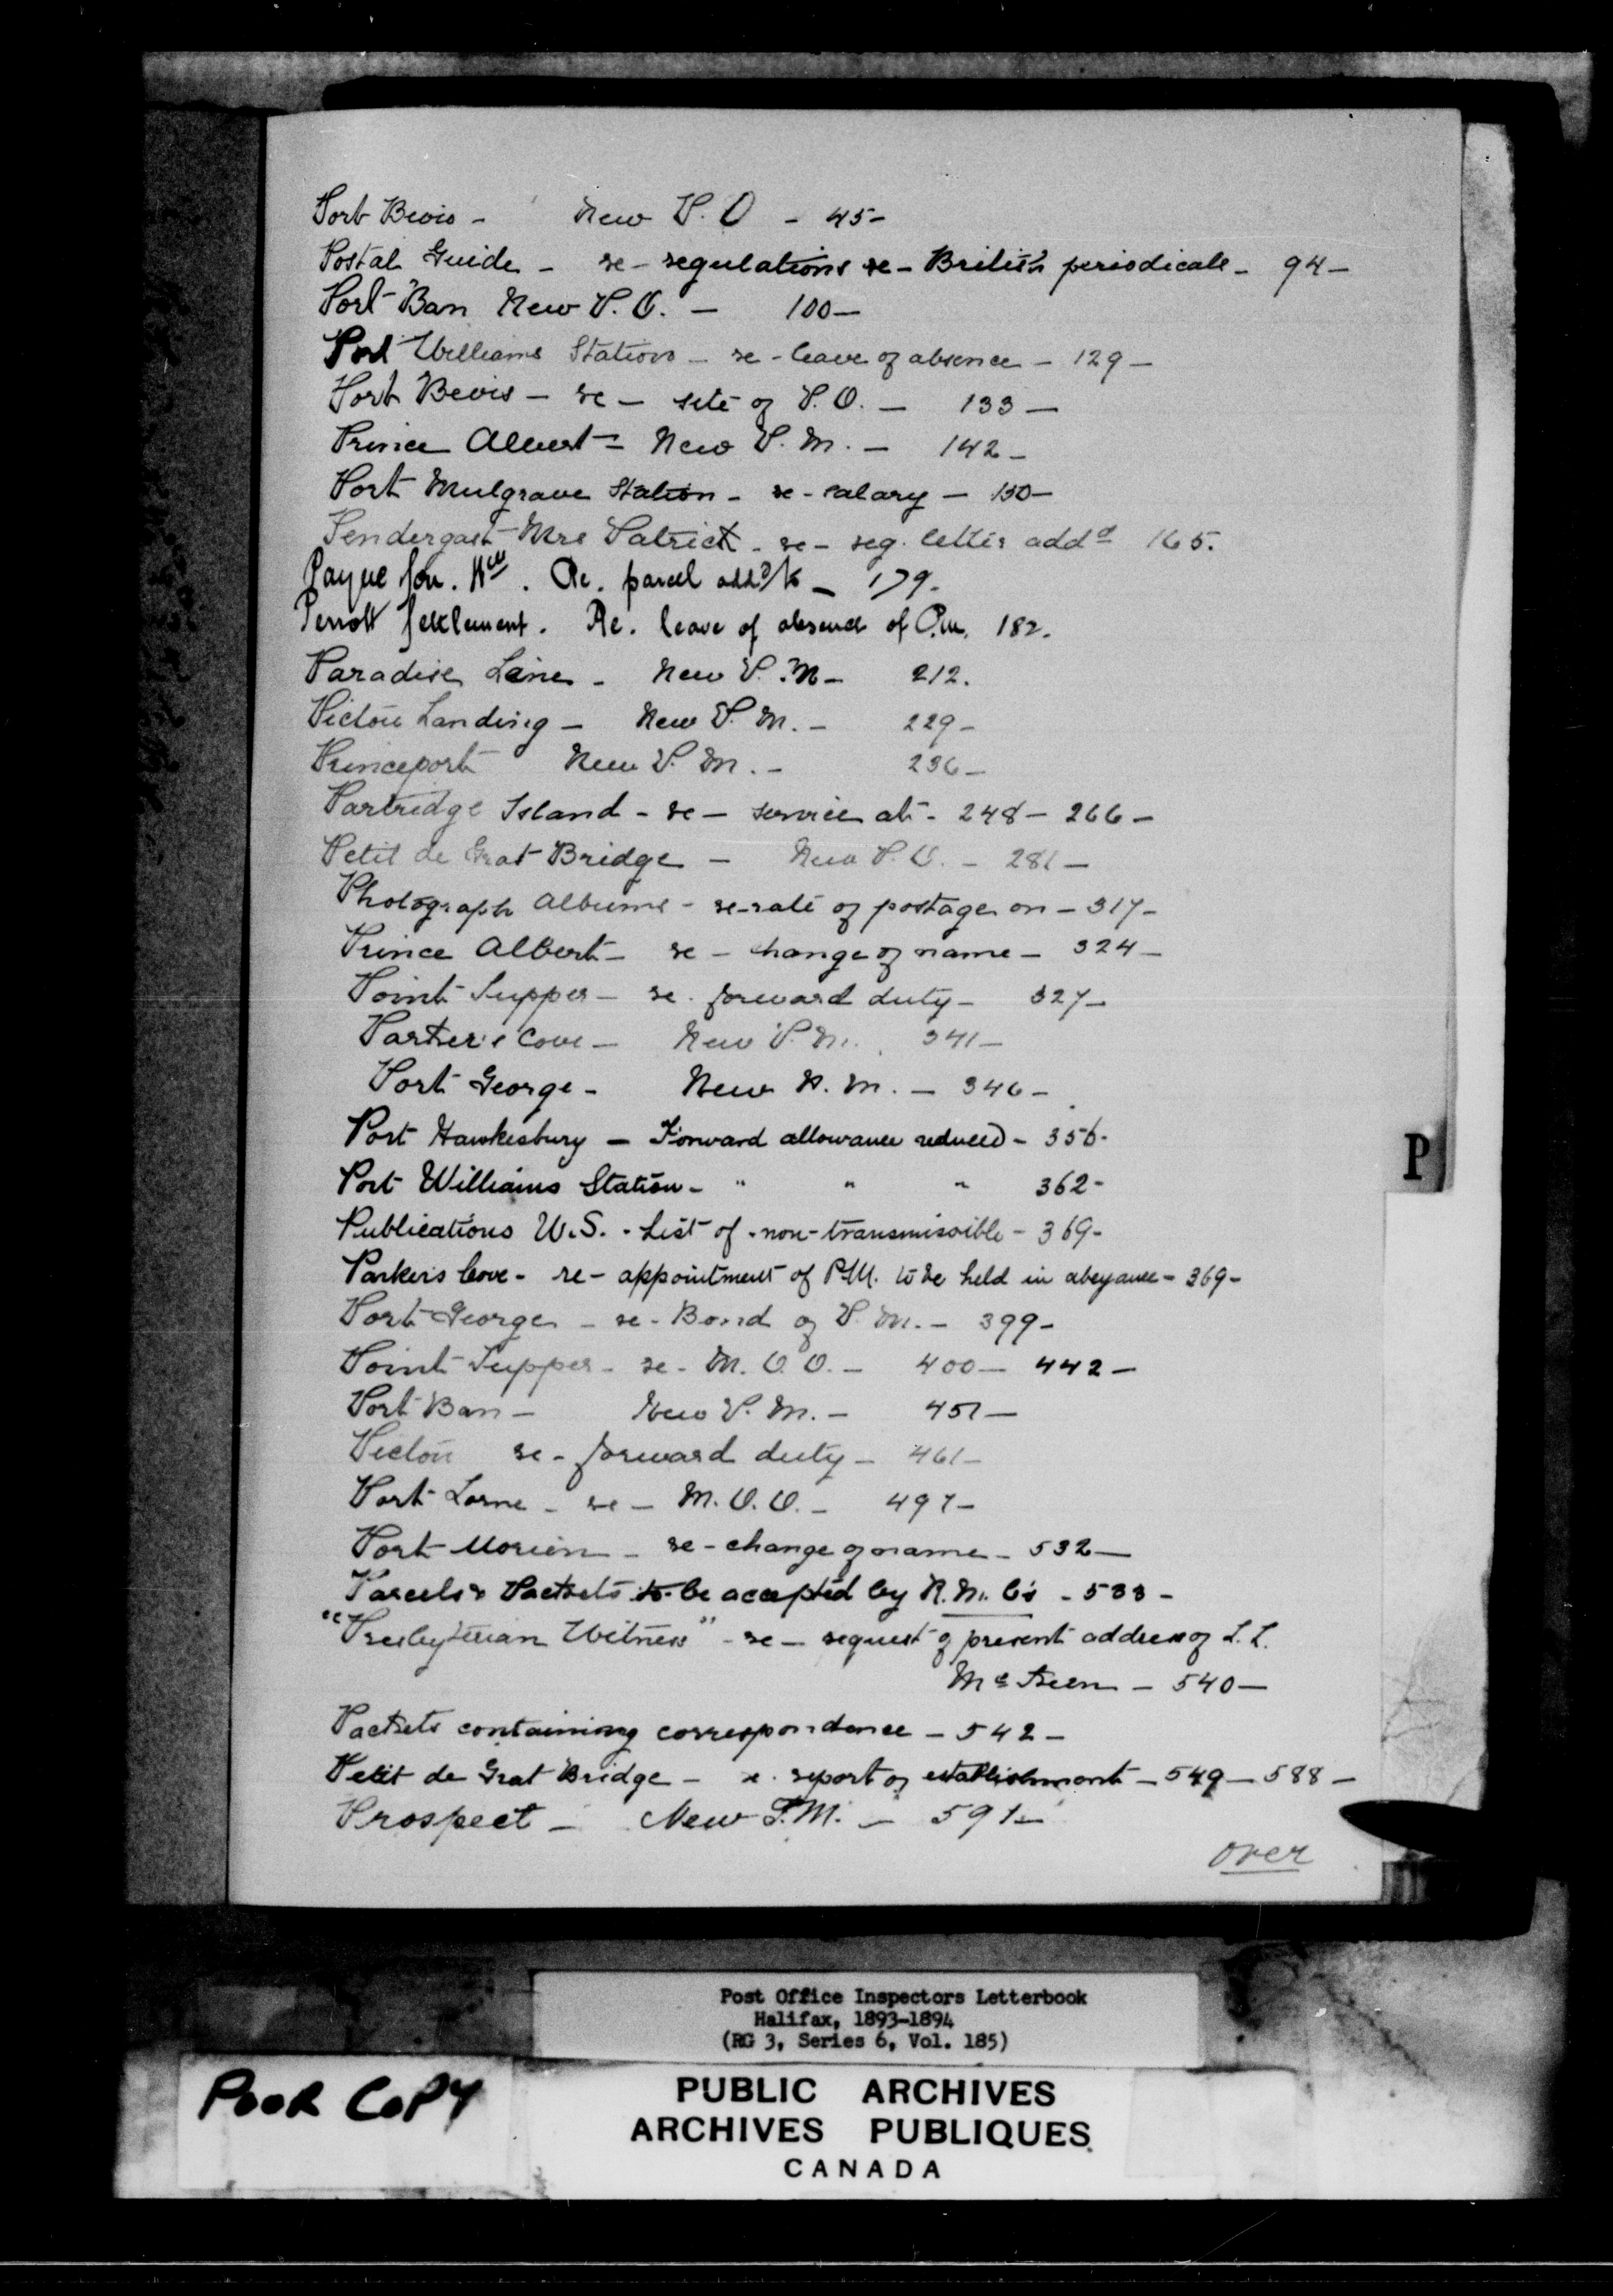 Port Bevis - New P. O - 45-
Postal Guide - re - regulations re - British periodicals - 94-
Port Ban New P. O. - 100-
Port Williams Station - re - leave of absence - 129-
Port Bevis - re - site of P. O. - 133-
Prince Albert - New P. M. - 142-
Port Mulgrave Station - re - salary - 150-
Pendergast Mrs Patrick - re - reg. letter addd 165.
Payne Wm. Re. parcel addd to - 179-
Perrott Settlement. Re. leave of absence of P.M. 182.
Paradise Lane - New P. M - 212.
Pictou Landing - New P. M. - 229-
Princeport New P. M. - 236-
Partridge Island - re - service at - 248 - 266-
Petit de Grat Bridge - New P. O. - 281-
Photograph Albums - re - rate of postage on - 317-
Prince Albert - re - change of name - 324-
Point Tupper - re - forward duty - 327-
Parker's Cove - New P. M. 341-
Port George - New P. M. - 346-
Port Hawkesbury - Forward allowance reduced - 356-
Port Williams Station - " " " 362-
Publications U.S. - List of - non-transmissible - 369-
Parker's Cove - re - appointment of P.M. to be held in abeyance - 369-
Port George - re - Bond of P. M. - 399-
Point Tupper - re - M. O. O. - 400 - 442-
Port Ban - New P. M. - 451-
Pictou re - forward duty - 461-
Port Lorne - re - M. O. O. - 497-
Port Morien - re - change of name - 532-
Parcels & Packets to be accepted by R. M. C's - 533-
"Presbyterian Witness" - re - request of present address of L. L.
- 540-
Packets containing correspondence - 542-
Petit de Grat Bridge - re. report of establishment - 549 - 588-
Prospect - New P.M. - 591-
over
P
Post Office Inspectors Letterbook
Halifax, 1893-1894
(RG 3, Series 6, Vol. 185)
POOR COPY
PUBLIC ARCHIVES
ARCHIVES PUBLIQUES
CANADA